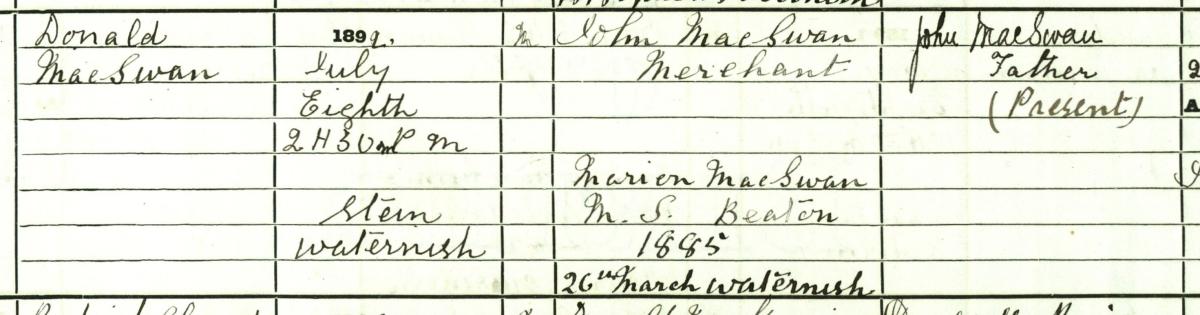 Donald
MacSwan
1899.
July
Eighth
2 H 30 m P M
Stein
Waternish
M
John MacSwan
Merchant
Marion MacSwan
M. S. Beaton
1885
26th March Waternish
John MacSwan
Father
(Present)